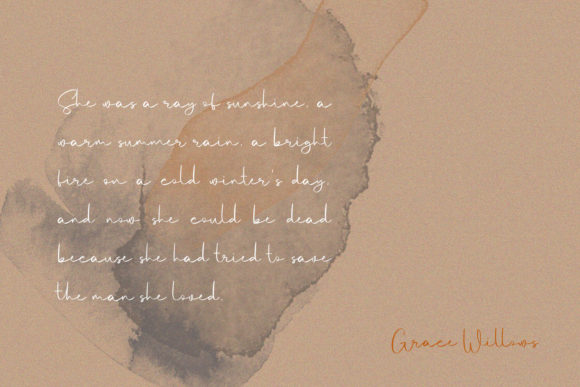 She was a ray of sunshine, a
warm summer rain, a bright
fire on a cold winter's day,
and now she could be dead
because she had tried to save
the man she loved.
Grace Willows